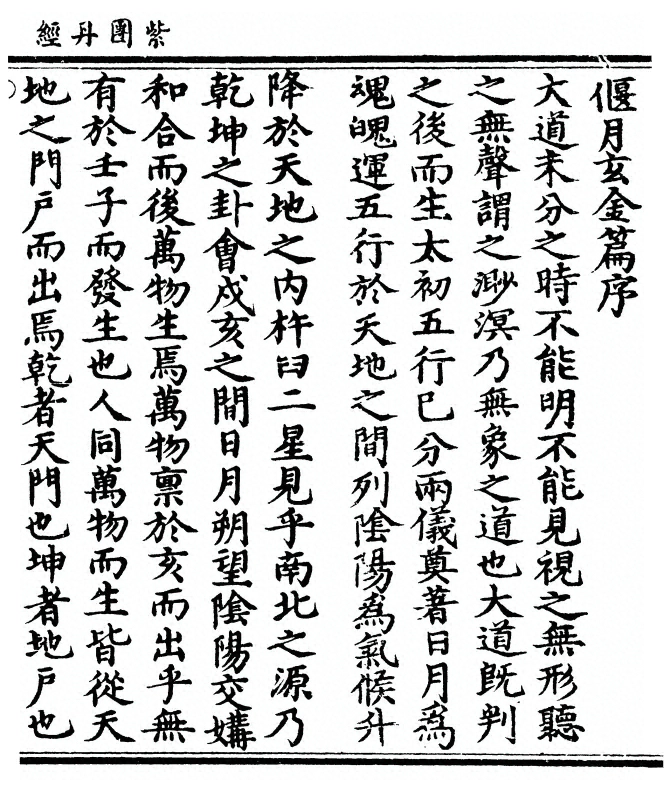 紫團丹經
偃月玄金篇序
大道未分之時不能明不能見視之無形聽
之無聲謂之渺溟乃無象之道也大道既判
之後而生太初五行巳分兩儀奠著日月為
魂魄運五行於天地之間列陰陽為氣候升
降於天地之内杵臼二星見乎南北之源乃
乾坤之卦會戍亥之間日月朔望陰陽交媾
和合而後萬物生焉萬物禀於亥而出乎無
有於壬子而發生也人同萬物而生皆從天
地之門戶而出焉乾者天門也坤者地戶也